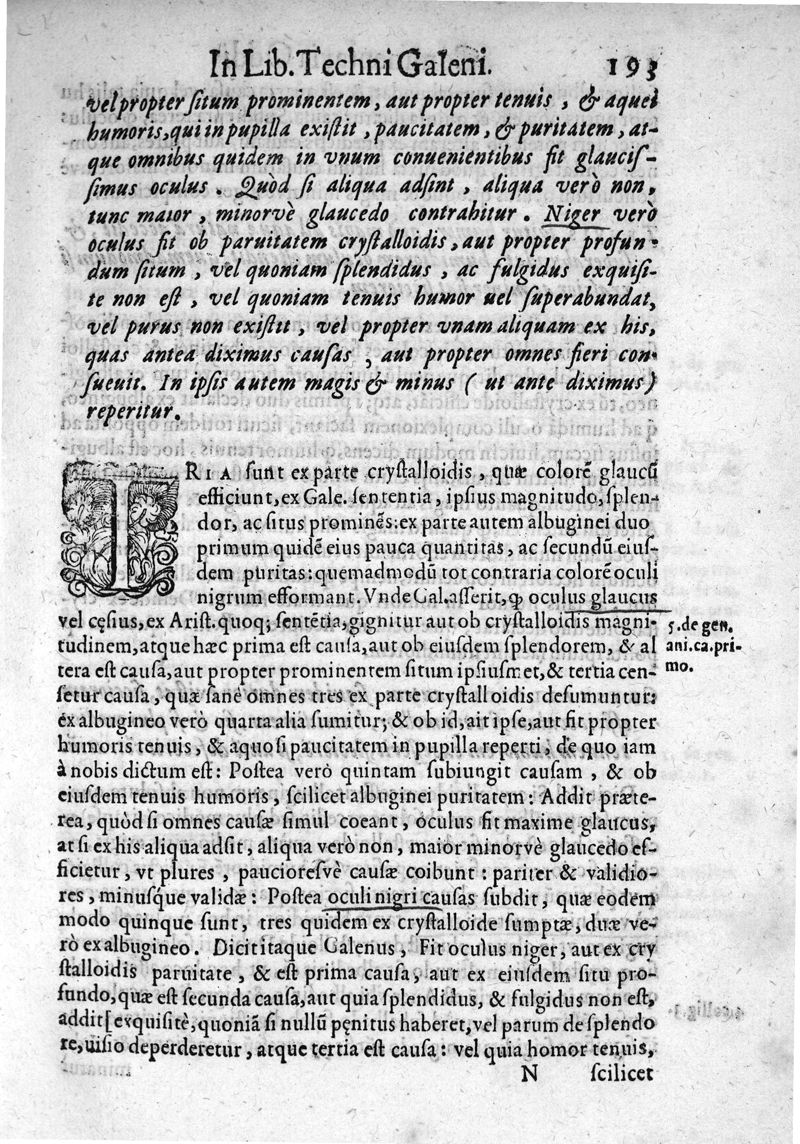 In Lib. Techni Galeni. 193
vel propter ſitum prominentem, aut propter tenuis, & aquei
humoris, qui in pupilla exiſtit, paucitatem, & puritatem, at-
que omnibus quidem in vnum conuenientibus fit glauciſ-
ſimus oculus. Quòd ſi aliqua adſint, aliqua verò non,
tunc maior, minorvè glaucedo contrahitur. Niger verò
oculus fit ob paruitatem cryſtalloidis, aut propter profun-
dum ſitum, vel quoniam ſplendidus, ac fulgidus exquiſi-
te non eſt, vel quoniam tenuis humor uel ſuperabundat,
vel purus non exiſtit, vel propter vnam aliquam ex his,
quas antea diximus cauſas, aut propter omnes fieri con-
ſueuit. In ipſis autem magis & minus (ut ante diximus)
reperitur.
TRIA ſunt ex parte cryſtalloidis, quæ colorē glaucū
efficiunt, ex Gale. ſententia, ipſius magnitudo, ſplen-
dor, ac ſitus prominēs: ex parte autem albuginei duo
primum quidē eius pauca quantitas, ac ſecundū eiuſ-
dem puritas: quemadmodū tot contraria colorē oculi
nigrum efformant. Vnde Gal. aſſerit, ꝙ oculus glaucus
vel cęſius, ex Ariſt. quoq; ſentētia, gignitur aut ob cryſtalloidis magni-
tudinem, atque hæc prima eſt cauſa, aut ob eiuſdem ſplendorem, & al
tera eſt cauſa, aut propter prominentem ſitum ipſiuſmet, & tertia cen-
ſetur cauſa, quæ ſanè omnes tres ex parte cryſtalloidis deſumuntur:
ex albugineo verò quarta alia ſumitur; & ob id, ait ipſe, aut fit propter
humoris tenuis, & aquoſi paucitatem in pupilla reperti, de quo iam
à nobis dictum eſt: Poſtea verò quintam ſubiungit cauſam, & ob
eiuſdem tenuis humoris, ſcilicet albuginei puritatem: Addit præte-
rea, quòd ſi omnes cauſæ ſimul coeant, oculus fit maxime glaucus,
at ſi ex his aliqua adſit, aliqua verò non, maior minorvè glaucedo eſ-
ficietur, vt plures, pauciorefvè cauſæ coibunt: pariter & validio-
res, minuſq́ue validæ: Poſtea oculi nigri cauſas ſubdit, quæ eodem
modo quinque ſunt, tres quidem ex cryſtalloide ſumptæ, duæ ve-
rò ex albugineo. Dicit itaque Galenus, Fit oculus niger, aut ex cry
ſtalloidis paruitate, & eſt prima cauſa, aut ex eiuſdem ſitu pro-
fundo, quæ eſt ſecunda cauſa, aut quia ſplendidus, & fulgidus non eſt,
addit [exquiſitè, quoniā ſi nullū pęnitus haberet, vel parum de ſplendo
re, uiſio deperderetur, atque tertia eſt cauſa: vel quia homor tenuis,
N ſcilicet
5. de gen.
ani. ca. pri-
mo.